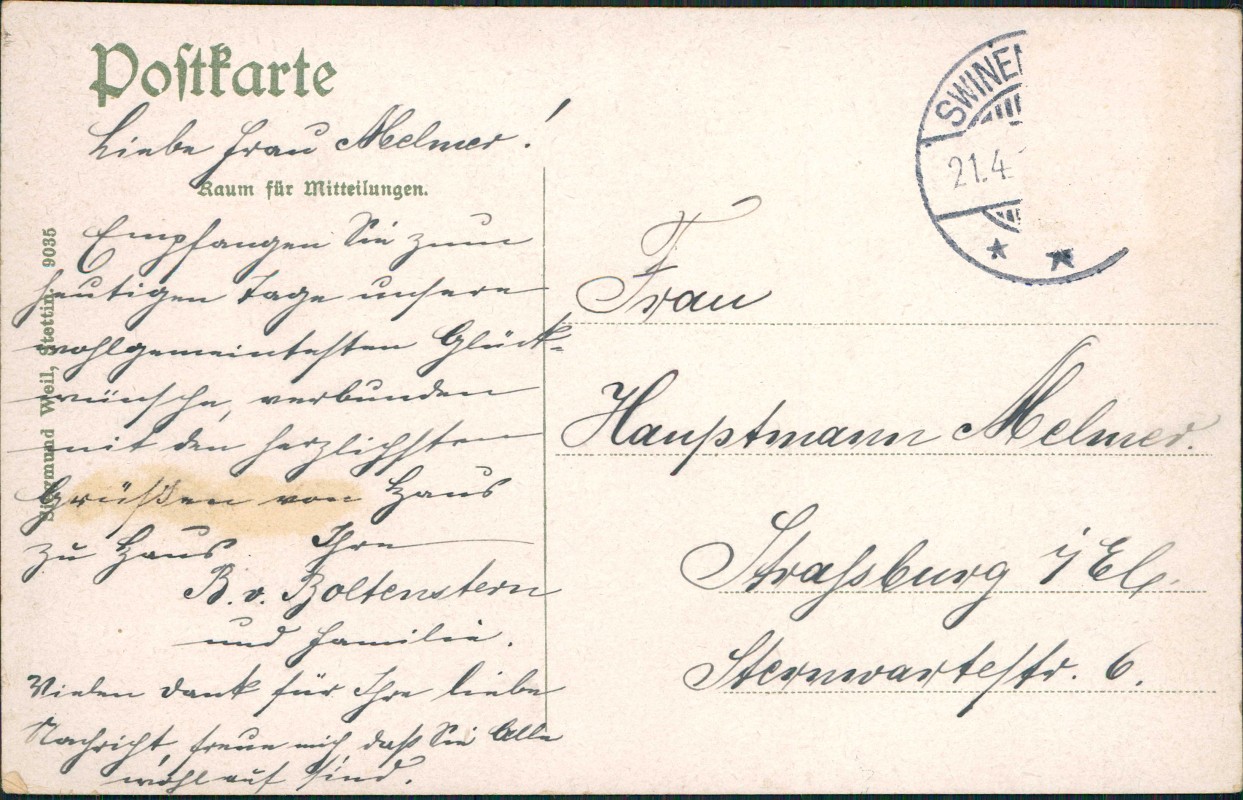 Postkarte
Liebe Frau Melmer!
Raum für Mitteilungen.
Empfangen Sie zum
heutigen Tage unsere
wohlgemeintesten Glück-
wünsche, verbunden
mit den herzlichsten
Grüßen von Haus
zu Haus. Ihre
B. v. Boltenstern
und Familie.
Vielen Dank für Ihre liebe
Nachricht, freue mich, daß Sie Alle
wohlauf sind.
Sigmund Weil, Stettin. 9035
SWINEM
21.4
Frau
Hauptmann Melmer.
Strassburg i/Els.
Sternwartestr. 6.